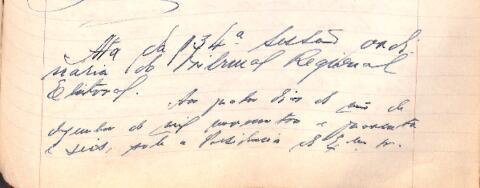 Ata da 134ª sessão ordi
nária do Tribunal Regional
Eleitoral.
Aos quatro dias do mês de
dezembro de mil novecentos e quarenta
e seis, sob a Presidencia do Exmo.